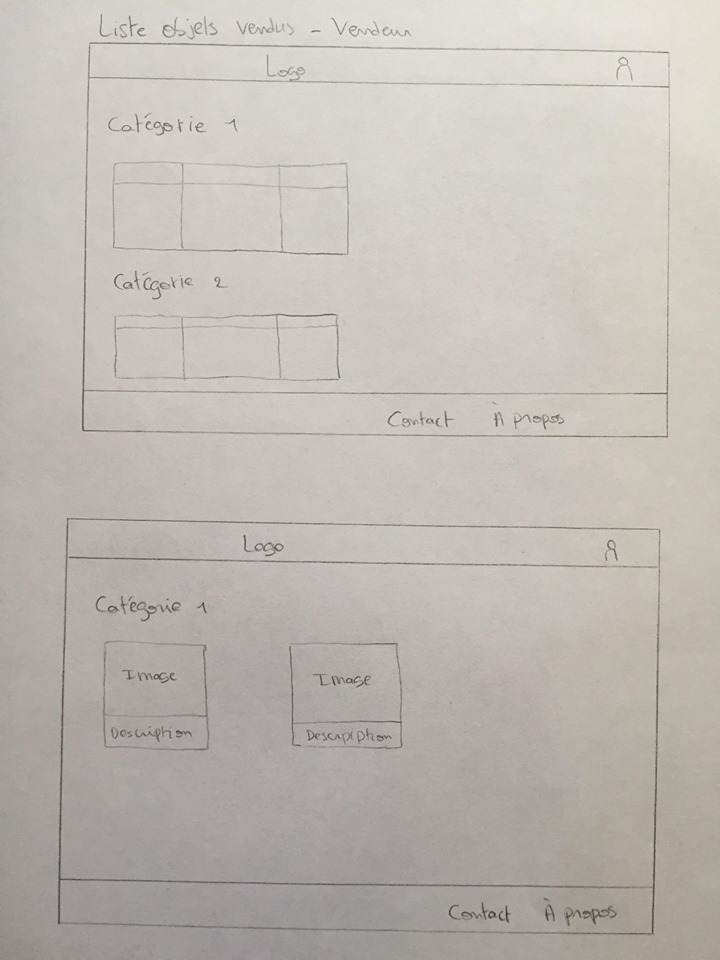 Liste objets vendus - Vendeur
Logo
Catégorie 1
Catégorie 2
Contact À propos
Logo
Catégorie 1
Image Image
Description Description
Contact À propos